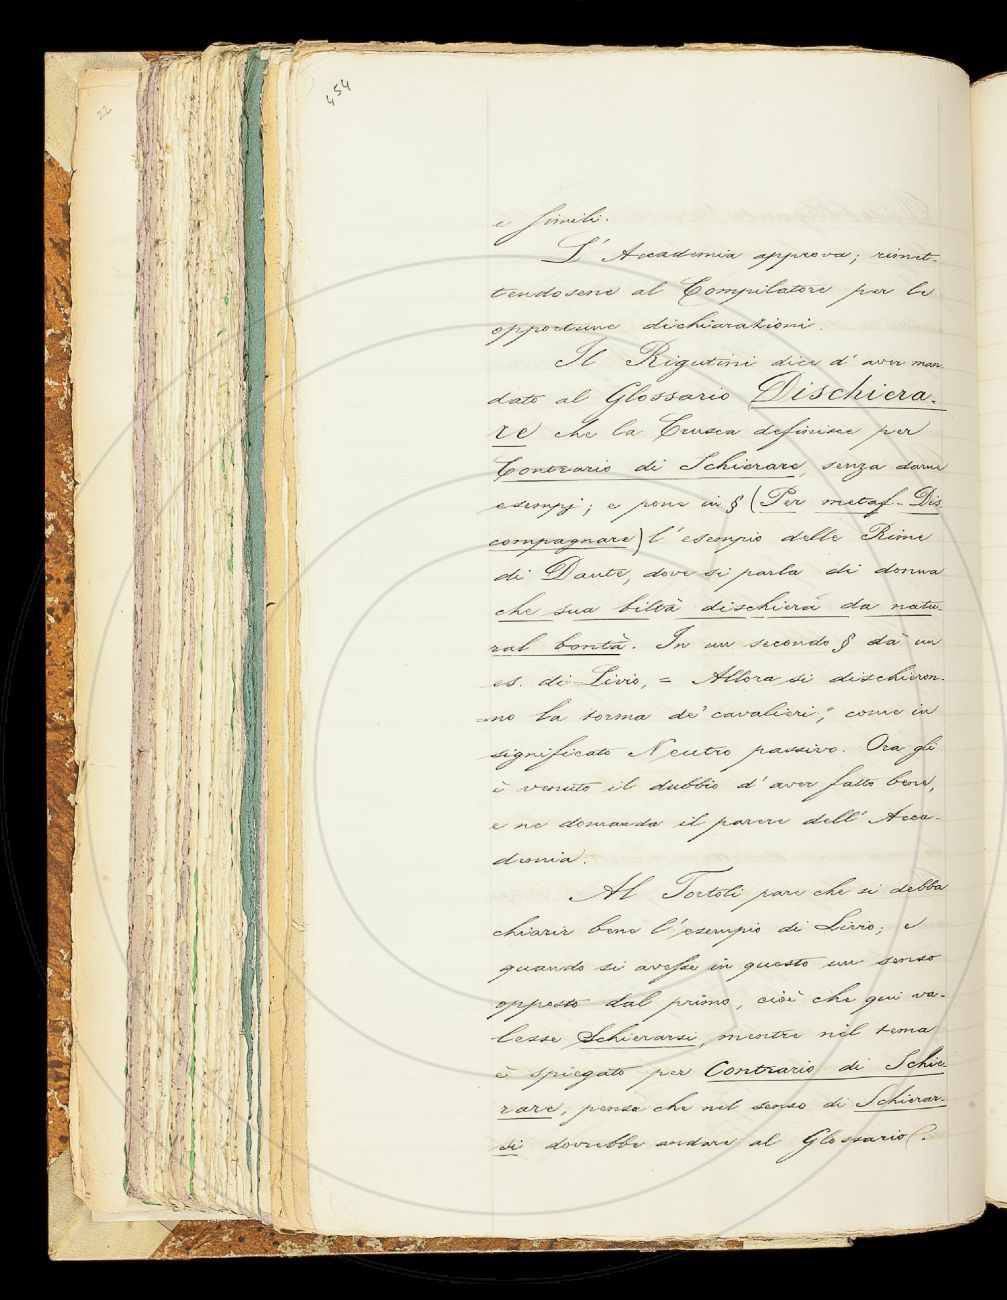 22
454
e simili.
L' Accademia approva; rimet-
tendosene al Compilatore per le
opportune dichiarazioni.
Il Rigutini dice d' aver man
dato al Glossario Dischiera-
re che la Crusca definisce per
Contrario di Schierare, senza darne
esempj; e pone in § (Per metaf.- Dis
compagnare) l' esempio delle Rime
di Dante, dove si parla di donna
che sua biltà dischiera da natu-
ral bontà. In un secondo § dà un
es. di Livio, = Allora si dischieron-
no la torma de' cavalieri," come in
significato Neutro passivo. Ora gli
è venuto il dubbio d' aver fatto bene,
e ne domanda il parere dell' Acca-
demia.
Al Tortoli pare che si debba
chiarir bene l' esempio di Livio; e
quando si avesse in questo un senso
opposto dal primo, cioè che qui va-
lesse Schierarsi, mentre nel tema
è spiegato per Contrario di Schie-
rare, pensa che nel senso di Schierar-
si dovrebbe andare al Glossario.